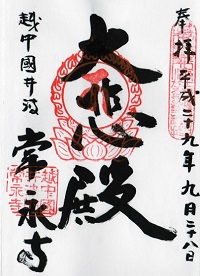 奉拝 平成二十九年九月二十八日
大悲殿
越中國井波
常永寺
越中國
井波
常永寺